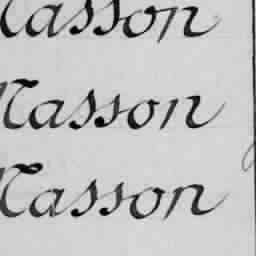 asson
asson
asson